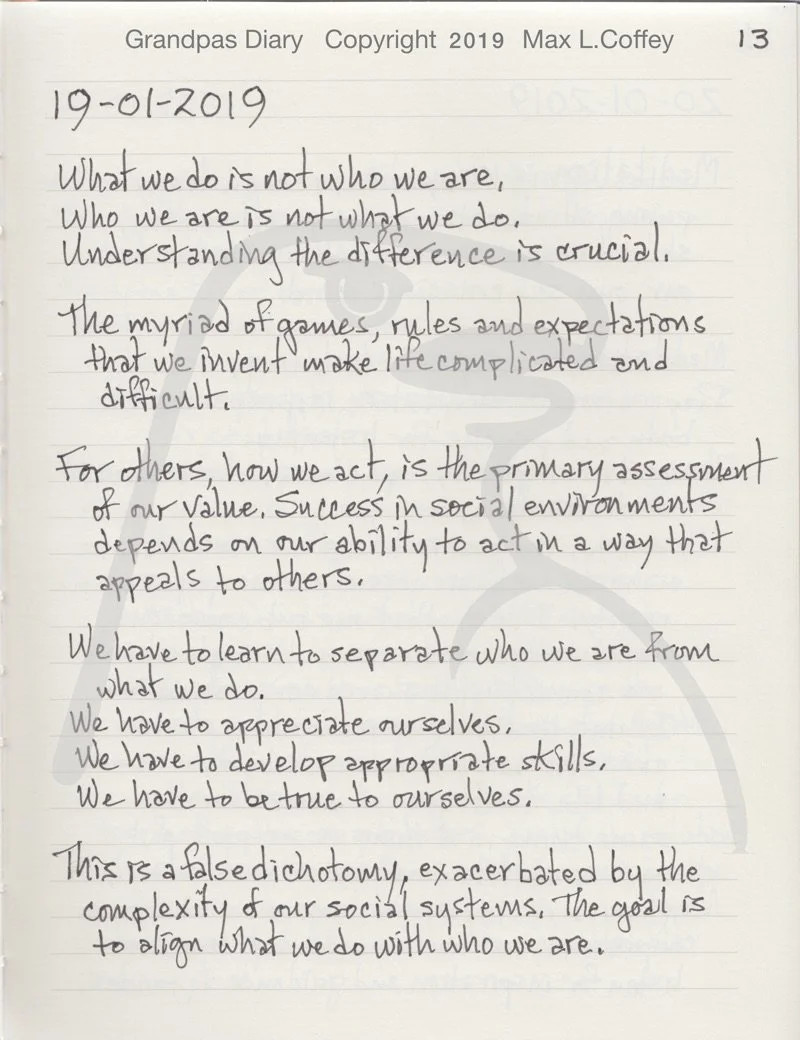 Grandpas Diary Copyright 2019 Max L.Coffey 13
19-01-2019
What we do is not who we are,
Who we are is not what we do.
Understanding the difference is crucial.
The myriad of games, rules and expectations
that we invent make life complicated and
difficult.
For others, how we act, is the primary assessment
of our value. Success in social environments
depends on our ability to act in a way that
appeals to others.
We have to learn to separate who we are from
what we do.
We have to appreciate ourselves.
We have to develop appropriate skills.
We have to be true to ourselves.
This is a false dichotomy, exacerbated by the
complexity of our social systems. The goal is
to align what we do with who we are.